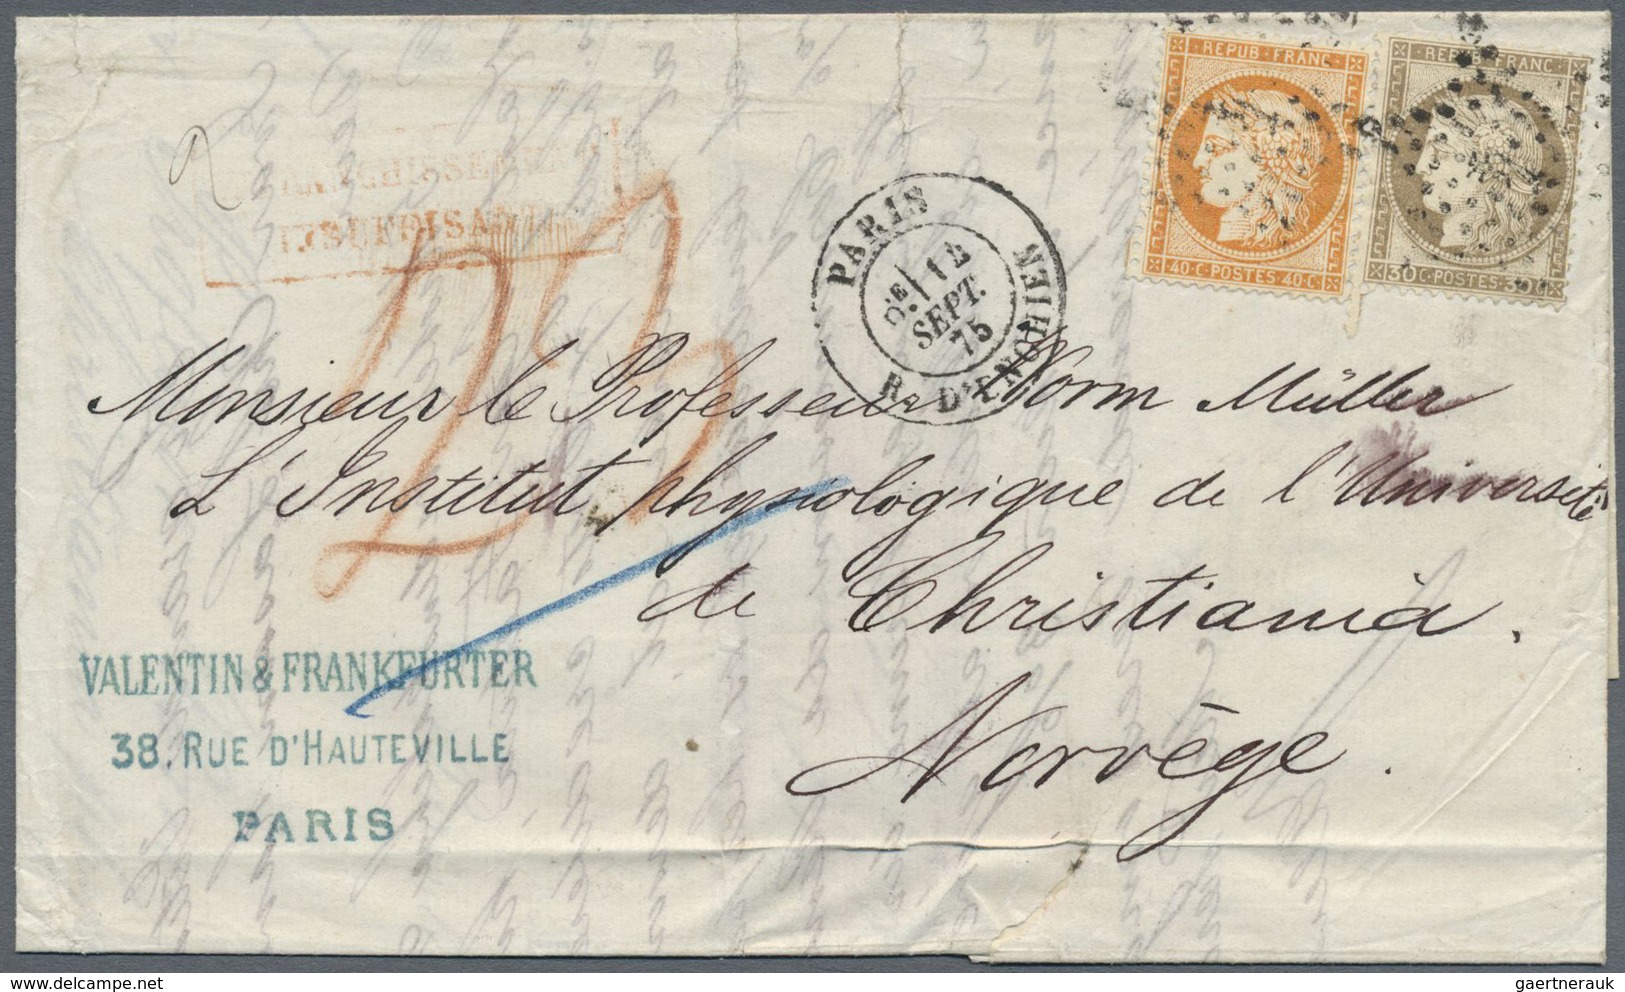 REPUB·FRANC·
40·C·POSTES·40·C·
REPUB·FRANC·
30·C·POSTES·30·C
AFFRANCHISSEMENT
INSUFFISANT
PARIS
R. D'ENGHIEN
12
SEPT.
75
23
Monsieur le Professeur Worm Müller
L'Institut physiologique de l'Université
de Christiania.
Norvège.
VALENTIN & FRANKFURTER
38, RUE D'HAUTEVILLE
PARIS
gaertnerauk